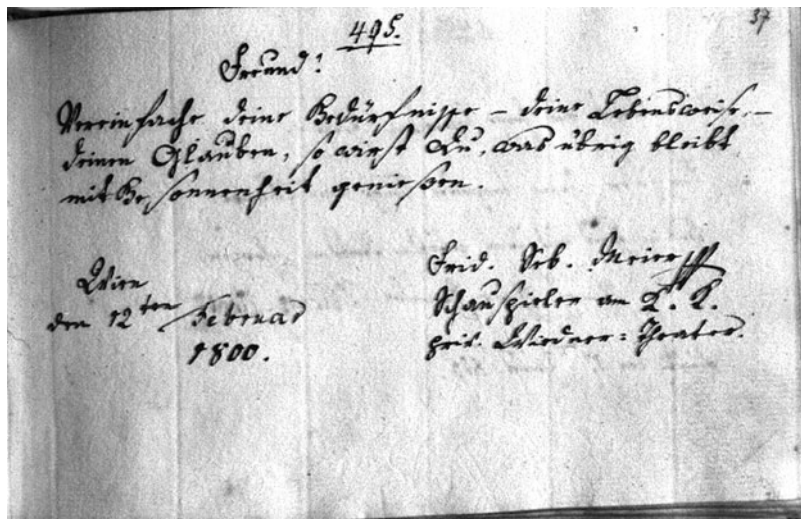 37
495.
Freund!
Vereinfache deine Bedürfnisse – deine Lebensweise, –
deinen Glauben, so wirst Du, was übrig bleibt
mit Besonnenheit genießen.
Wien
den 12ten Februar
1800.
Frid. Seb. Meier
Schauspieler am K. K.
priv. Wiedner=Theater.